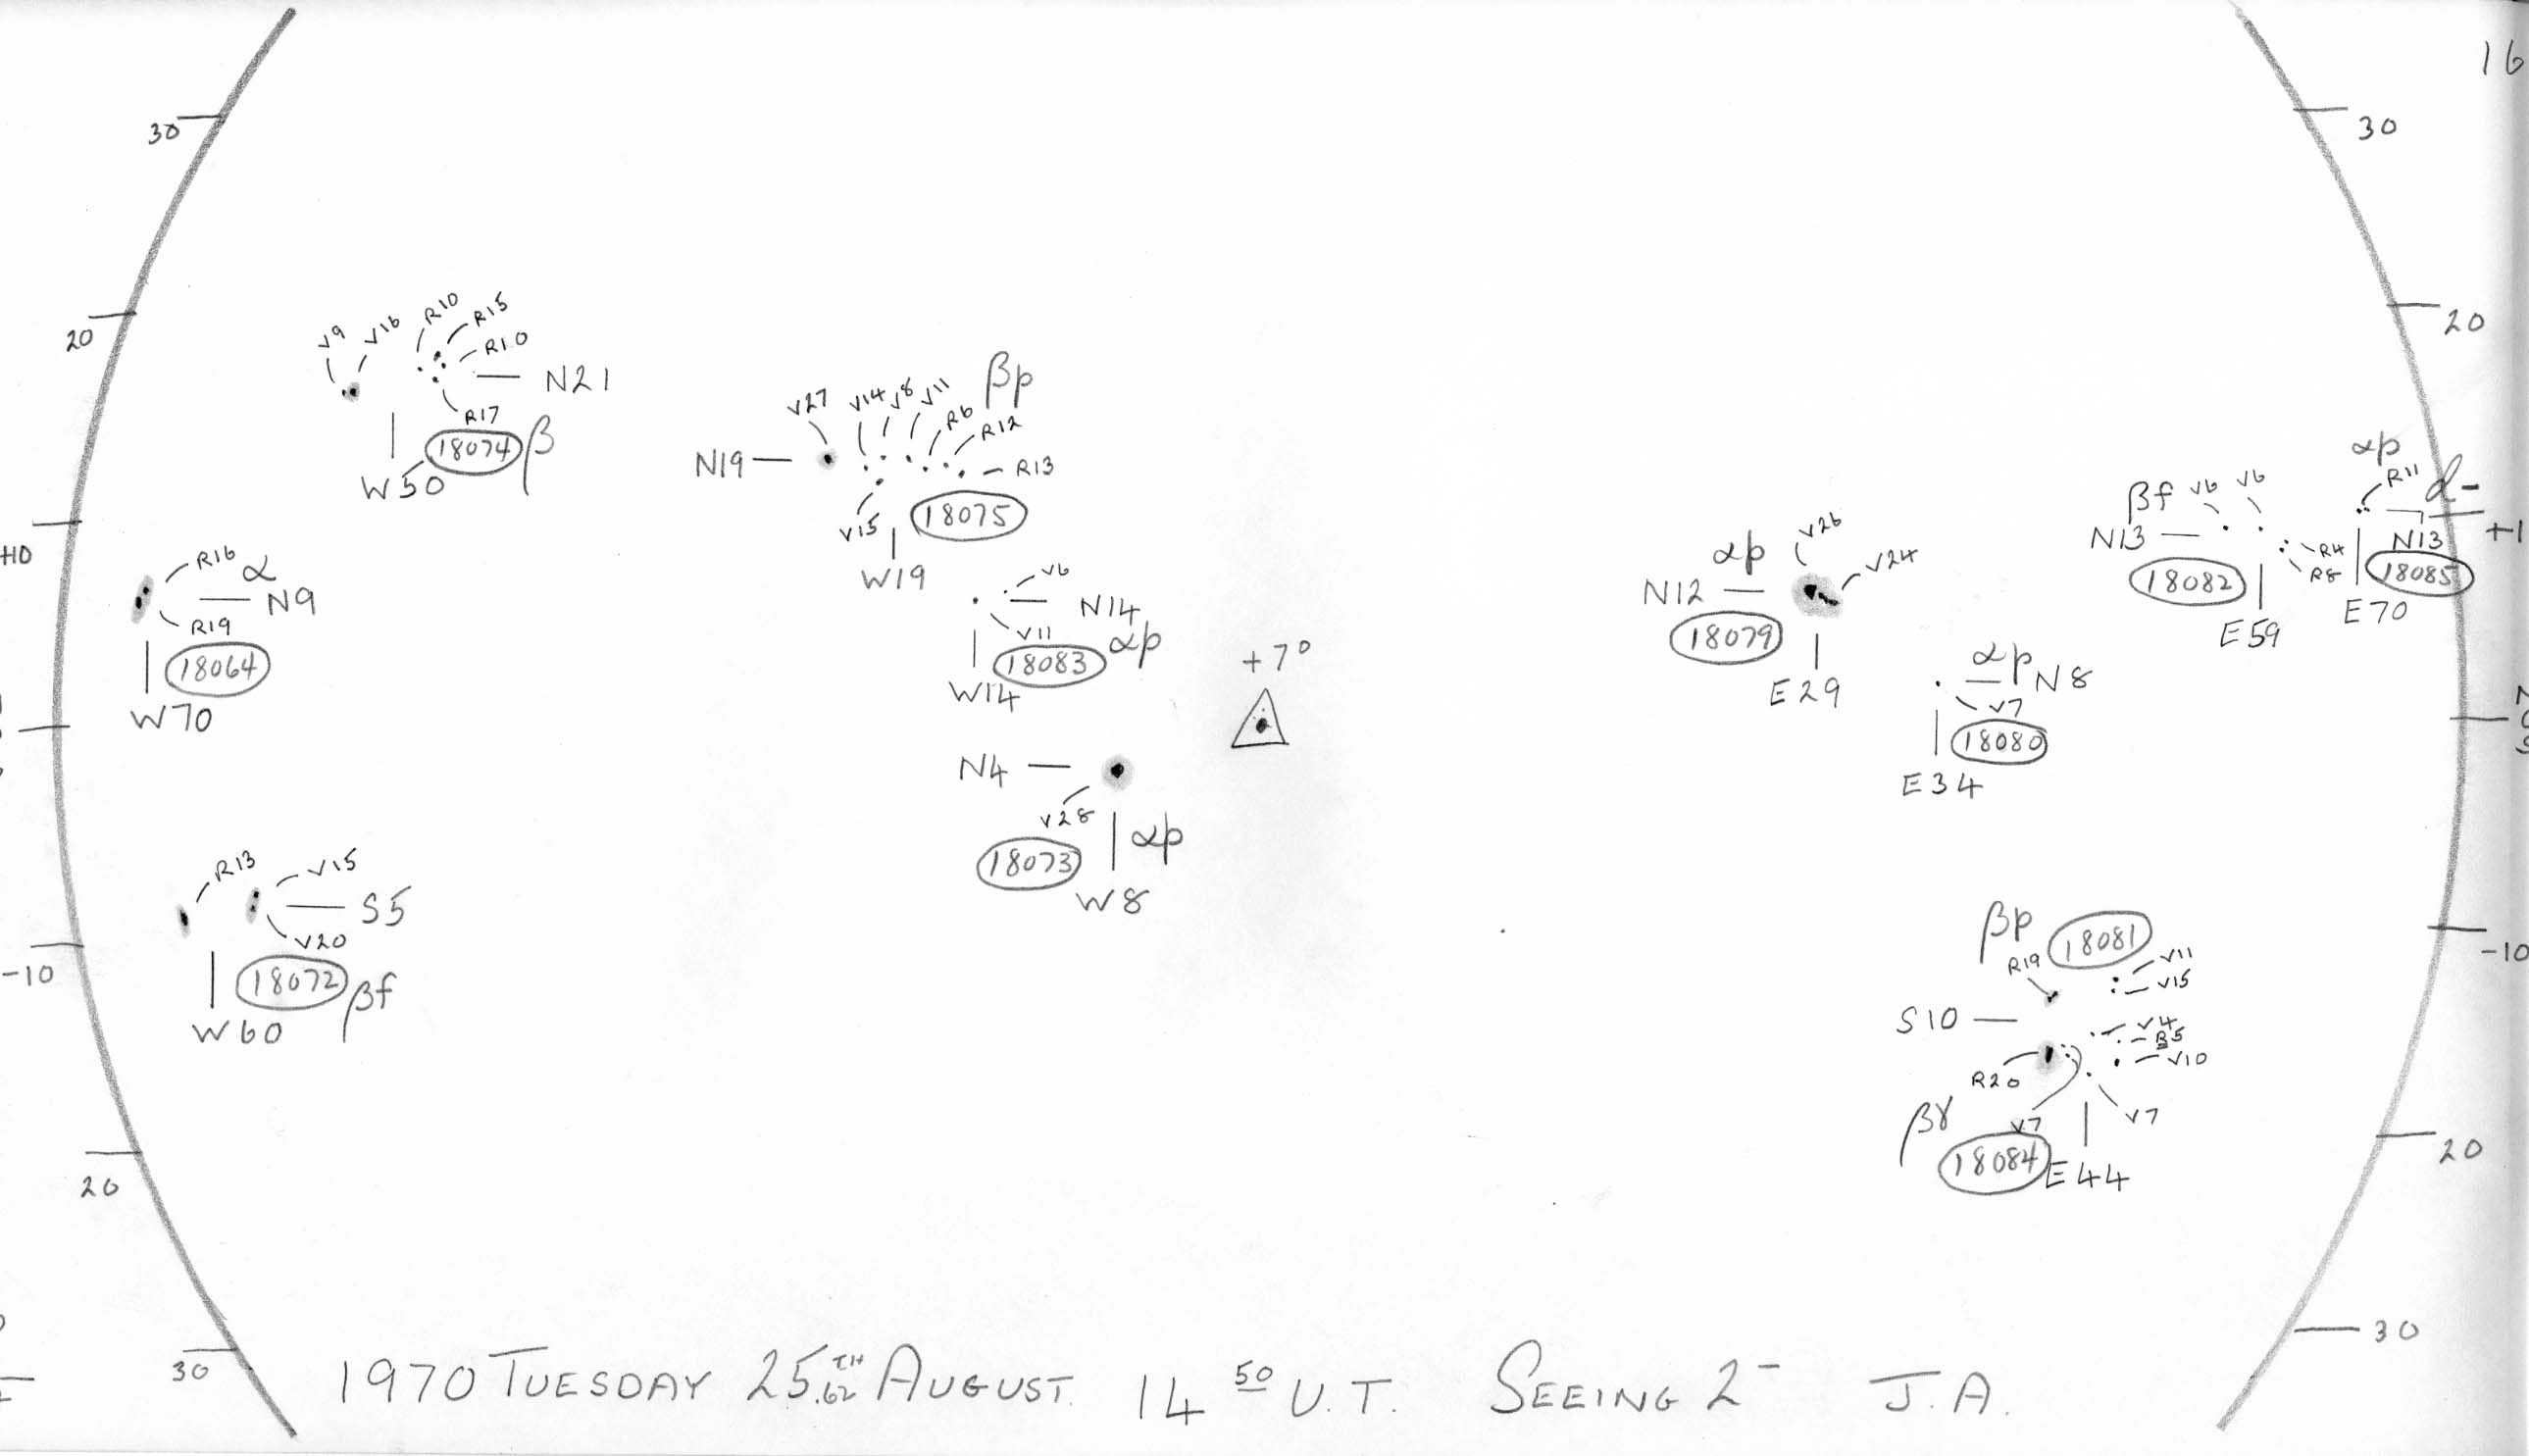 16
30
30
20
20
V9 V16 R10 R15
R10
N21
R17
18074 β
W50
βp
V27 V14 V8 V11 R6 R12
N19 R13
V15 18075
W19
+10
R16 α
N9
R19
18064
W70
V6
N14
V11
18083 αp
W14
+7°
N4
V28
αp
18073
W8
αp V26
V24
N12
18079
E29
αp N8
V7
18080
E34
βf V6 V6
N13
R4
R8
18082
E59
αp
R11 α-
+1
N13
18085
E70
R13 V15
S5
V20
-10
18072 βf
W60
βp 18081
R19 V11
V15
-10
S10
V4
R5
V10
R20
V7
V7
βγ
18084 E44
20
20
30
30
1970 TUESDAY 25TH.62 AUGUST. 14 50 U.T. SEEING 2- J.A.